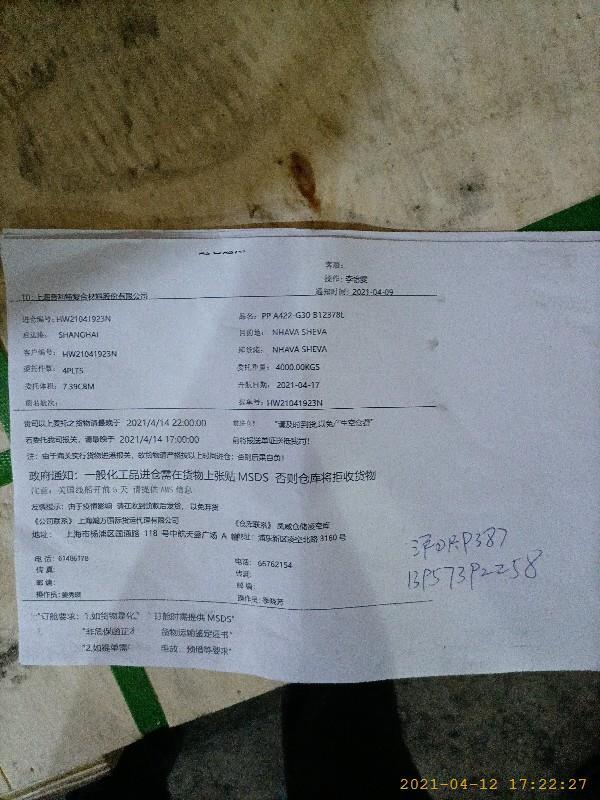 客服:
操作: 李怡雯
通知时间: 2021-04-09
TO: 上海普利特复合材料股份有限公司
进仓编号: HW21041923N
品名: PP A422-G30 B12378L
启运港: SHANGHAI
目的地: NHAVA SHEVA
客户编号: HW21041923N
卸货港: NHAVA SHEVA
委托件数: 4PLTS
委托重量: 4000.00KGS
委托体积: 7.39CBM
开航日期: 2021-04-17
船名航次:
提单号: HW21041923N
我司以上委托之货物请最晚于 2021/4/14 22:00:00
"请及时到货,以免产生空仓费"
若委托我司报关, 请最晚于 2021/4/14 17:00:00
前将报送单证送抵我司!
注: 由于海关实行货物进港报关, 故货物请严格按以上时间进仓; 否则后果自负!
政府通知: 一般化工品进仓需在货物上张贴 MSDS 否则仓库将拒收货物
注意: 美国线船开前 5 天 请提供 AMS 信息
《公司联系》 上海瀚万国际货运代理有限公司
《仓库联系》 凤威仓储凌空库
地址: 上海市杨浦区国通路 118 号中航天盛广场 A
地址: 浦东新区凌空北路 3160 号
电话: 61486178
电话: 65762154
传真:
传真:
邮编:
邮编:
操作员:
操作员: 李晓芳
"订舱要求: 1.如货物是化
订舱时需提供 MSDS"
"非危保函正本
货物运输鉴定证书"
"2.如提单需
电放、预借等要求"
13957392258
2021-04-12 17:22:27